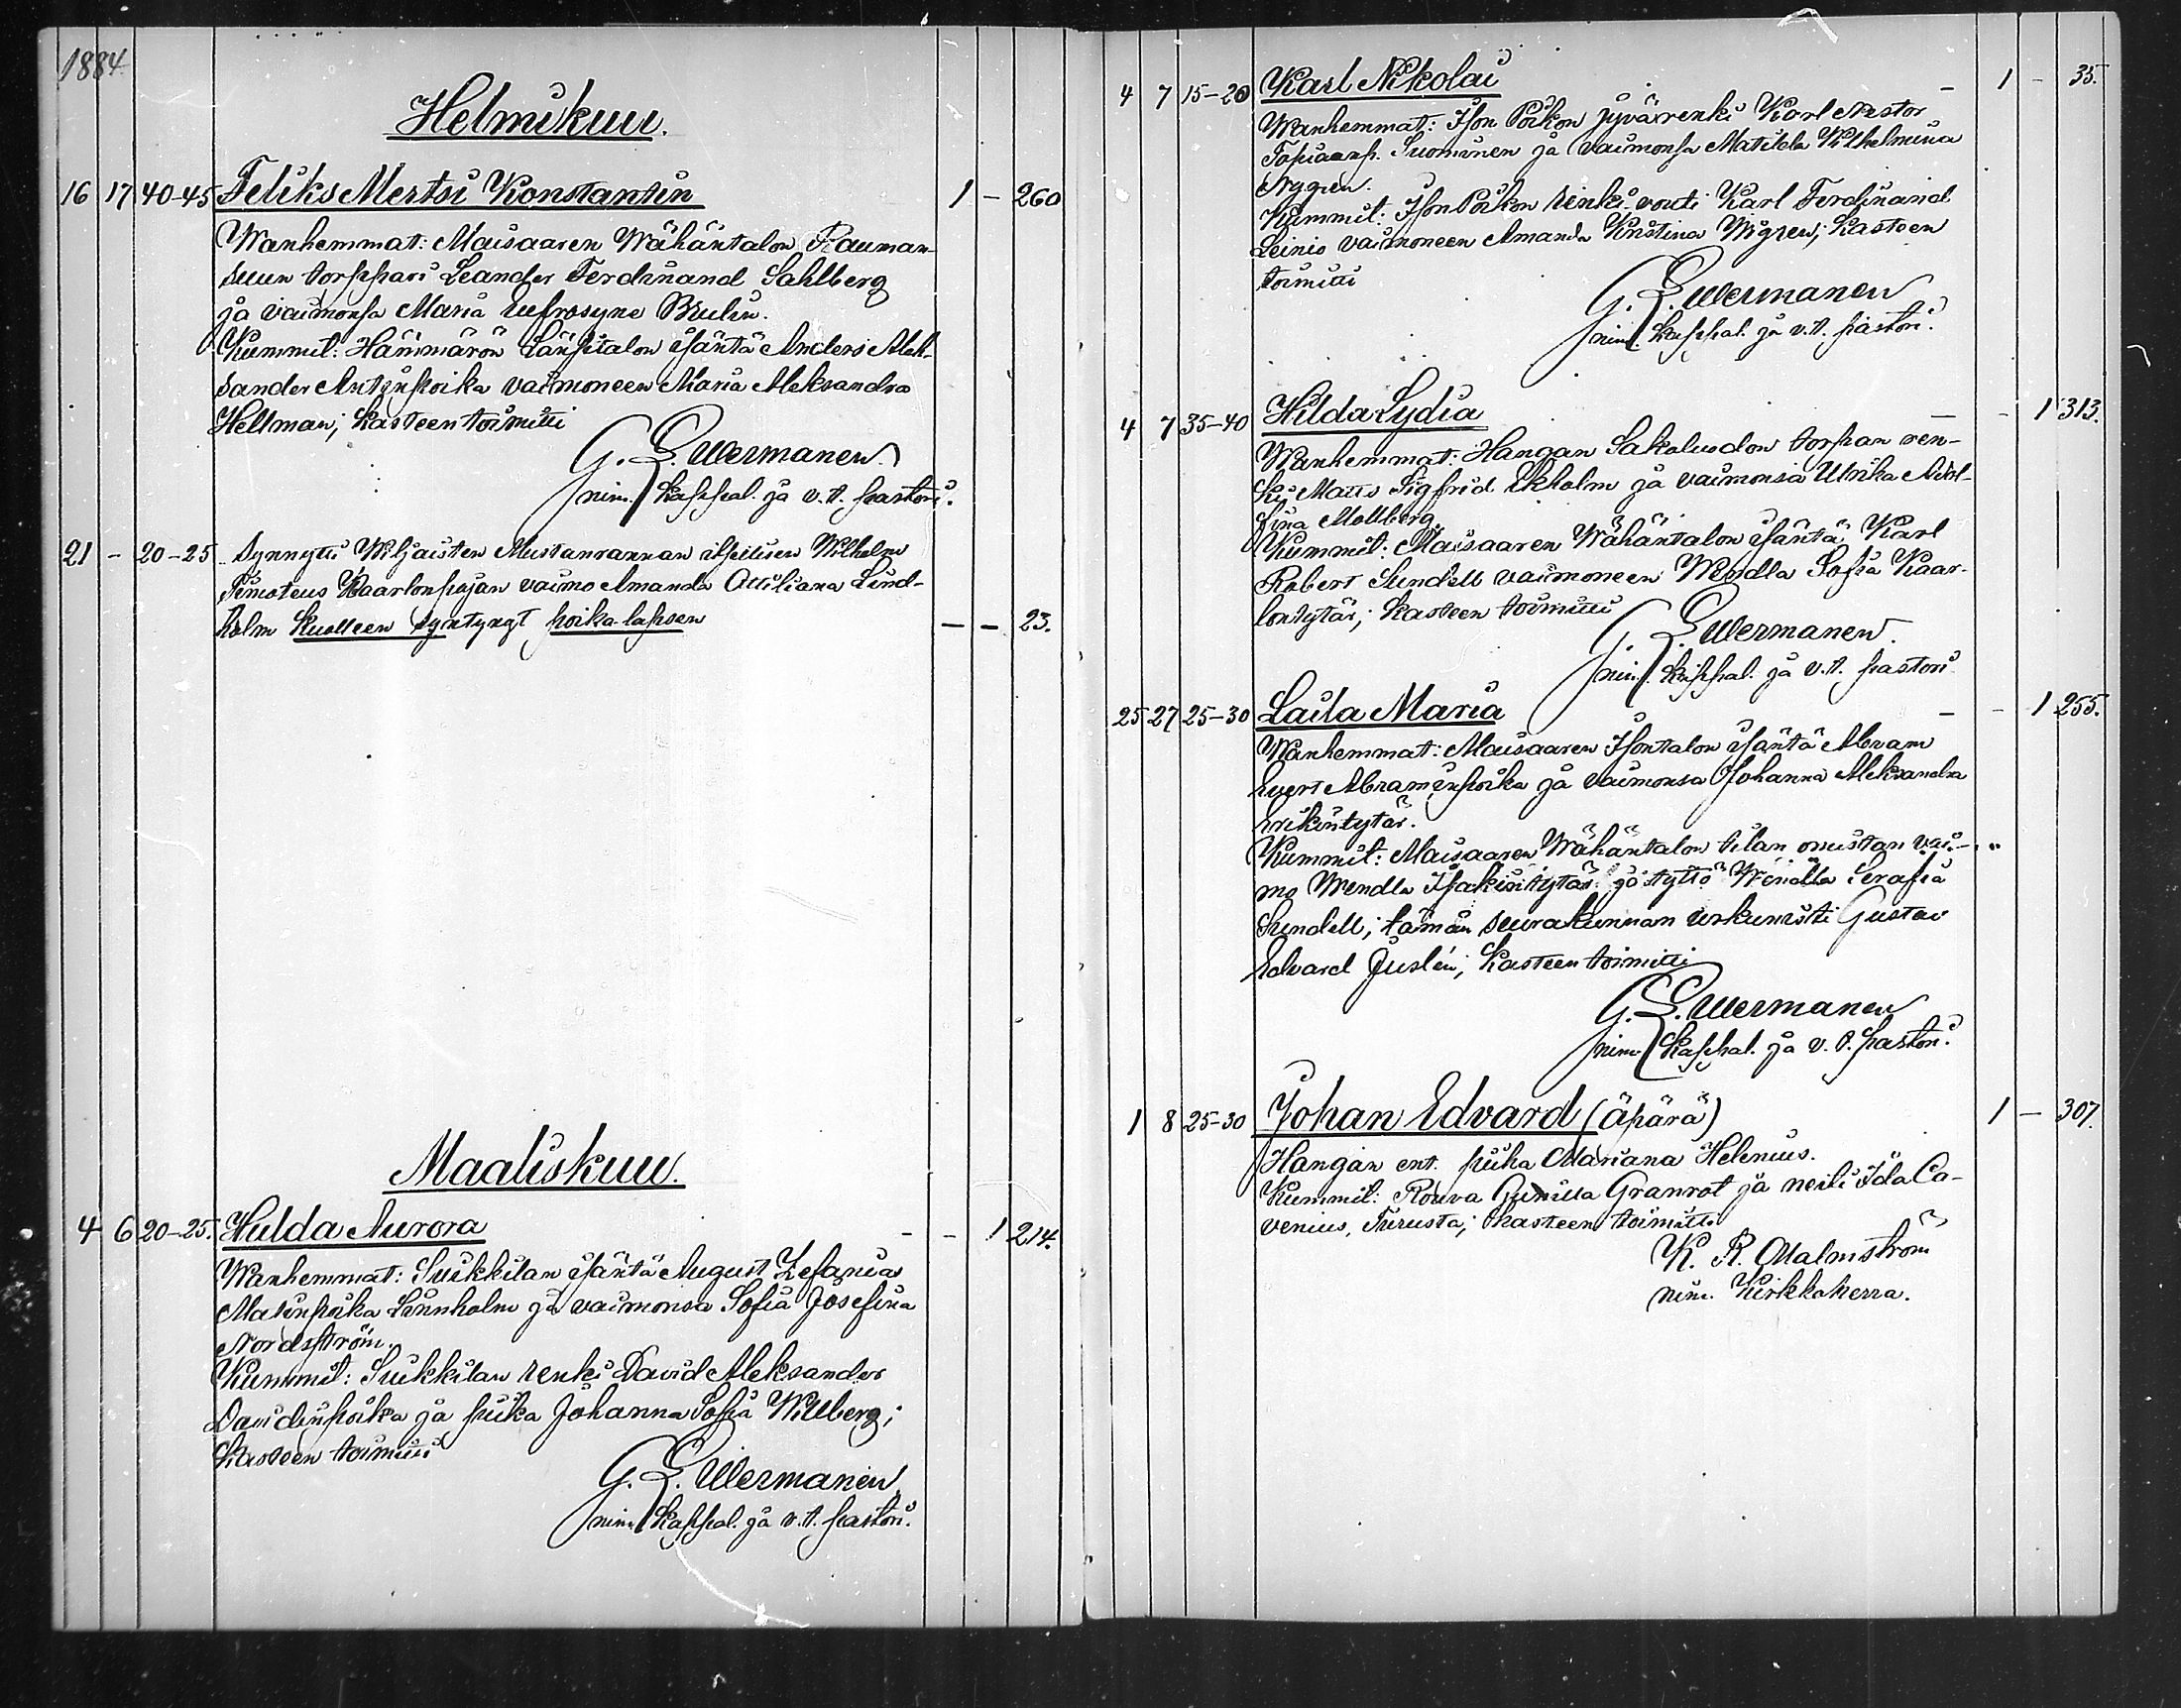 1884.
Helmikuu.
16 17 40-45 Feliks Mertsi Konstantin 1 - 260
Wanhemmat: Maisaaren Wähäntalon Rauman-
suun torppari Leander Ferdinand Sahlberg
ja vaimonsa Maria Eufrosyne Brulin.
Kummit: Hammärön Länsitalon isäntä Anders Alek-
sander Antinpoika vaimoneen Maria Aleksandra
Hellman; Kasteen toimitti
G. L. Wermanen.
nim. Kappal. ja v. t. pastori.
21 - 20-25 Synnytti Wiljaisten Mustanrannan itsellisen Wilhelm
Timoteus Kaarlonpojan vaimo Amanda Ottiliana Lind-
holm kuolleen syntynyt poika-lapsen - - 23.
Maaliskuu.
4 6 20-25. Hulda Aurora - - 1 214.
Wanhemmat: Suikkilan isäntä August Zefanias
Matinpoika Linnholm ja vaimonsa Sofia Josefina
Nordström.
Kummit: Suikkilan renki David Aleksander
Davidinpoika ja piika Johanna Sofia Willberg;
Kasteen toimitti
G. L. Wermanen
nim. Kappal. ja v. t. pastori.
4 7 15-20 Karl Nikolai - 1 - 35.
Wanhemmat: Ison Poikon jyvärenki Karl Nestor
Topiaanp. Suominen ja vaimonsa Matilda Wilhelmina
Nygren.
Kummit: Ison Poikon renki-vouti Karl Ferdinand
Leinio vaimoneen Amanda Kristina Wigren; Kasteen
toimitti
G. L. Wermanen
nim. Kappal. ja v. t. pastori.
4 7 35-40 Hilda Lydia - - 1 313.
Wanhemmat: Hangan Sakoluodon torpan ren-
ki Matts Sigfrid Ekholm ja vaimonsa Ulrika Adol-
fina Mollberg.
Kummit: Maisaaren Wähäntalon isäntä Karl
Robert Sundell vaimoneen Wendla Sofia Kaar-
lontytär; Kasteen toimitti
G. L. Wermanen.
nim. Kappal. ja v. t. pastori
25 27 25-30 Laila Maria - - 1 255.
Wanhemmat: Maisaaren Isontalon isäntä Abram
Evert Abraminpoika ja vaimonsa Johanna Aleksandra
Erikintytär.
Kummit: Maisaaren Wähäntalon tilan omistajan vai-
mo Wendla Isakintytär ja tyttö Wendla Serafia
Sundell; tämän seurakunnan urkunisti Gustav
Edvard Juslén; Kasteen toimitti
G. L. Wermanen
nim. Kappal. ja v. t. pastori.
1 8 25-30 Johan Edvard (äpärä) 1 - 307.
Hangan ent. piika Mariana Helenius.
Kummit: Rouva Gunilla Granrot ja neiti Ida Ca-
venius, Turusta; Kasteen toimitti
K. R. Malmström
nim. Kirkkoherra.